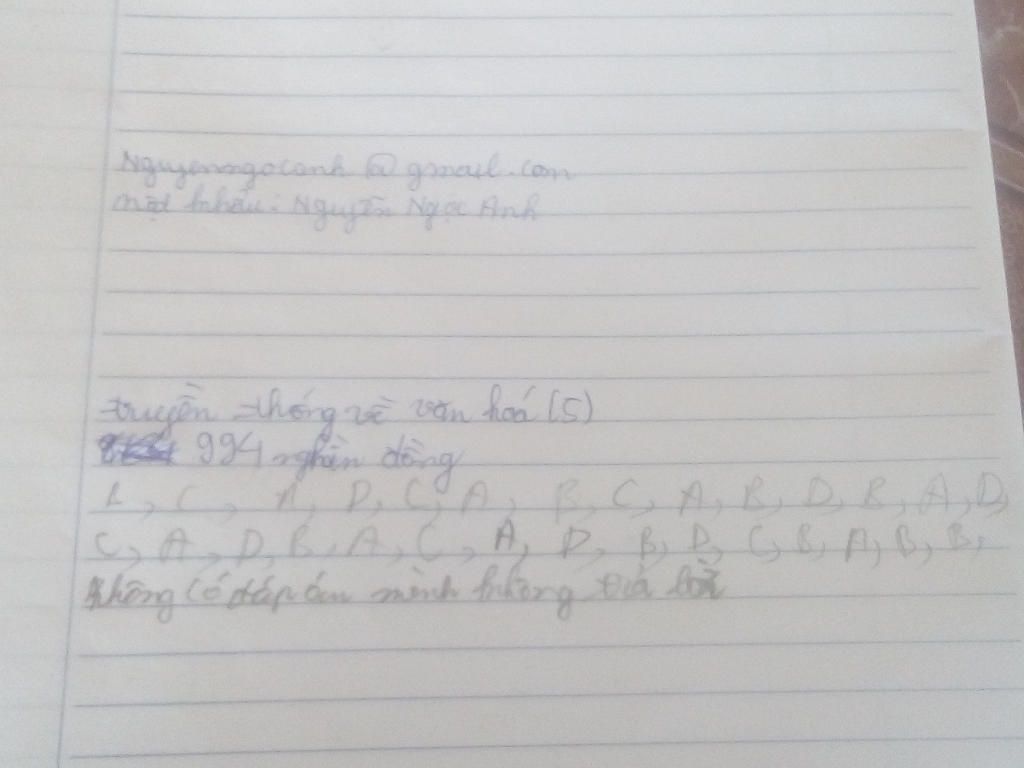 Nguyenngocanh @ gmail.com
mật khẩu: Nguyễn Ngọc Anh
truyền thống về văn hoá (5)
994 nghìn đồng
C, A, D, C, A, B, C, A, B, D, B, A, D,
C, A, D, B, A, C, A, D, B, D, C, B, A, B, B,
không có đáp án mình không trả lời